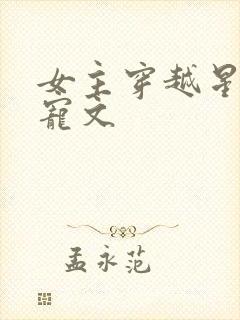 女主穿越星
寵文
孟永范